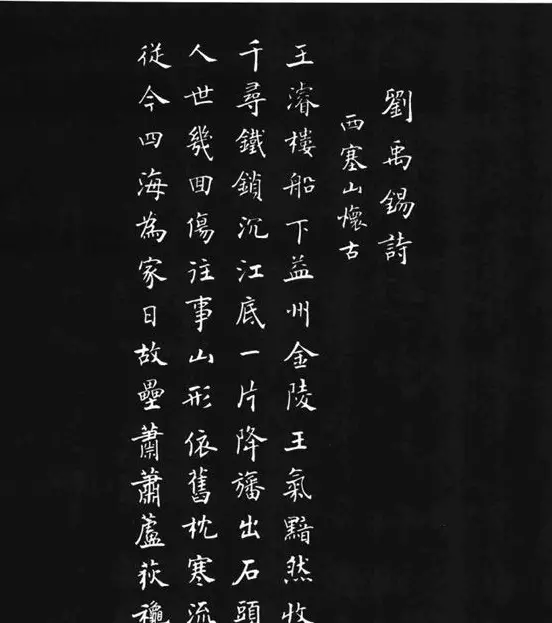 劉禹錫詩
西塞山懷古
王濬樓船下益州金陵王氣黯然收
千尋鐵鎖沉江底一片降旛出石頭
人世幾回傷往事山形依舊枕寒流
從今四海為家日故壘蕭蕭蘆荻穐